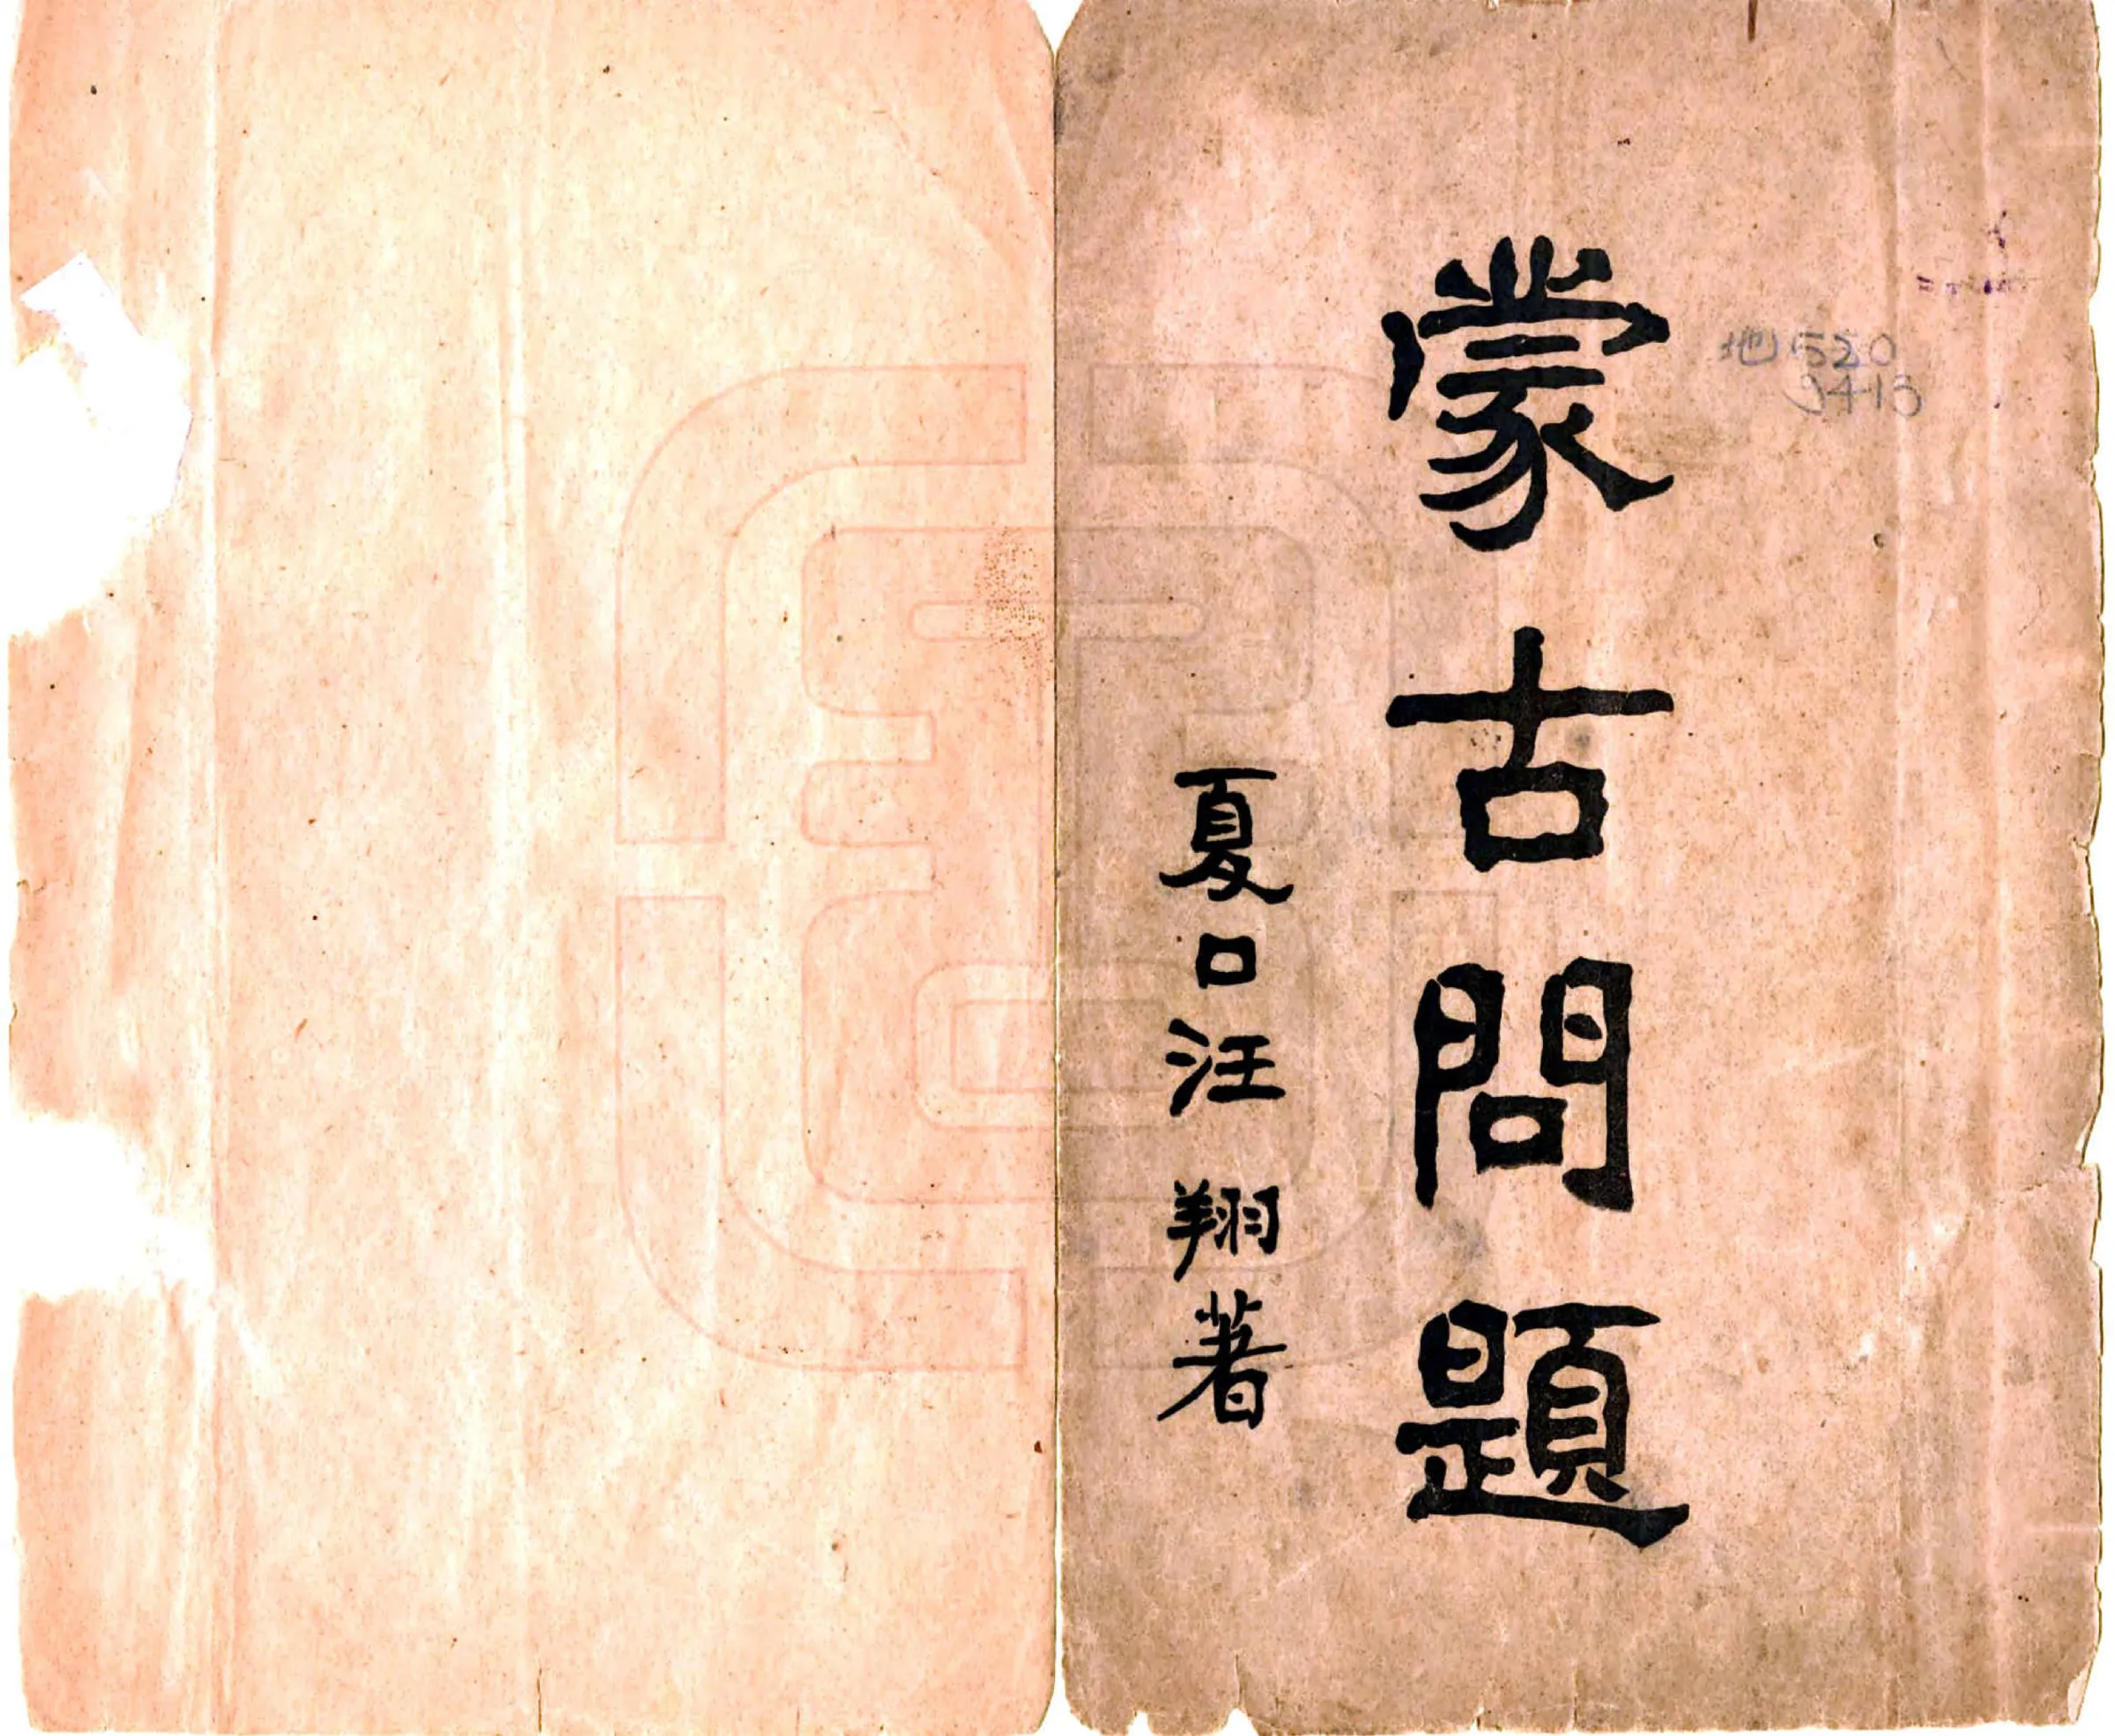 蒙古問題
夏口汪翔著
地520